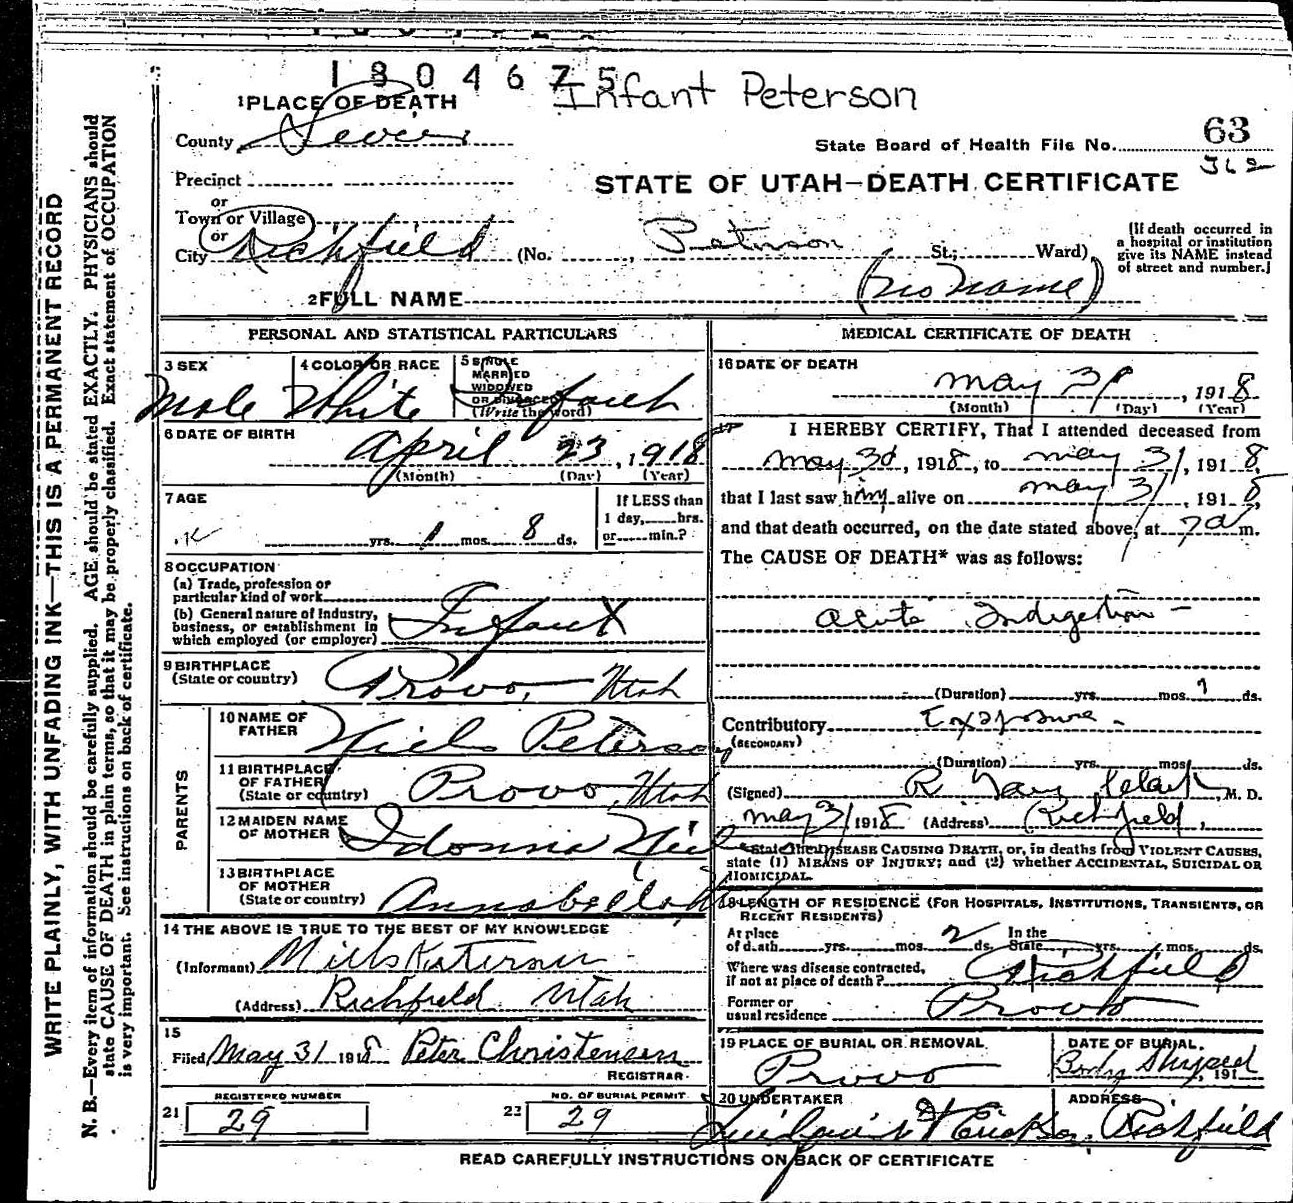 1804675
Infant Peterson
1 PLACE OF DEATH
County Sevier
State Board of Health File No. 63
362
Precinct
STATE OF UTAH—DEATH CERTIFICATE
or
Town or Village
or
City Richfield (No. , Peterson St.; Ward)
[If death occurred in a hospital or institution give its NAME instead of street and number.]
2 FULL NAME (no name)
PERSONAL AND STATISTICAL PARTICULARS
3 SEX Male
4 COLOR OR RACE White
5 SINGLE MARRIED WIDOWED OR DIVORCED (Write the word)
6 DATE OF BIRTH April 23, 1918
(Month) (Day) (Year)
7 AGE yrs. 1 mos. 8 ds.
If LESS than 1 day, hrs. or min.?
8 OCCUPATION
(a) Trade, profession or particular kind of work
(b) General nature of industry, business, or establishment in which employed (or employer) Infant
9 BIRTHPLACE (State or country) Provo, Utah
PARENTS
10 NAME OF FATHER Niels Peterson
11 BIRTHPLACE OF FATHER (State or country) Provo, Utah
12 MAIDEN NAME OF MOTHER Idonna
13 BIRTHPLACE OF MOTHER (State or country) Annabella
14 THE ABOVE IS TRUE TO THE BEST OF MY KNOWLEDGE
(Informant)
(Address) Richfield Utah
15
Filed May 31 1918 Peter Christensen
REGISTRAR
REGISTERED NUMBER
21 29
NO. OF BURIAL PERMIT
22 29
MEDICAL CERTIFICATE OF DEATH
16 DATE OF DEATH
May 31, 1918
(Month) (Day) (Year)
I HEREBY CERTIFY, That I attended deceased from
May 30, 1918, to May 31, 1918,
that I last saw him alive on May 31, 1918,
and that death occurred, on the date stated above, at 7 a m.
The CAUSE OF DEATH* was as follows:
Acute Indigestion -
(Duration) yrs. mos. 1 ds.
Contributory Exposure -
(SECONDARY)
(Duration) yrs. mos. ds.
(Signed) R , M. D.
May 31 1918 (Address) Richfield,
*State the DISEASE CAUSING DEATH, or, in deaths from VIOLENT CAUSES, state (1) MEANS OF INJURY; and (2) whether ACCIDENTAL, SUICIDAL OR HOMICIDAL.
18 LENGTH OF RESIDENCE (FOR HOSPITALS, INSTITUTIONS, TRANSIENTS, OR RECENT RESIDENTS)
At place of death yrs. mos. 2 ds. In the State yrs. mos. ds.
Where was disease contracted, if not at place of death? Richfield
Former or usual residence Provo
19 PLACE OF BURIAL OR REMOVAL Provo
DATE OF BURIAL. Body Shipped, 191
20 UNDERTAKER
ADDRESS Richfield
READ CAREFULLY INSTRUCTIONS ON BACK OF CERTIFICATE
WRITE PLAINLY, WITH UNFADING INK—THIS IS A PERMANENT RECORD
N. B.—Every item of information should be carefully supplied. AGE should be stated EXACTLY. PHYSICIANS should
state CAUSE OF DEATH in plain terms, so that it may be properly classified. Exact statement of OCCUPATION
is very important. See instructions on back of certificate.